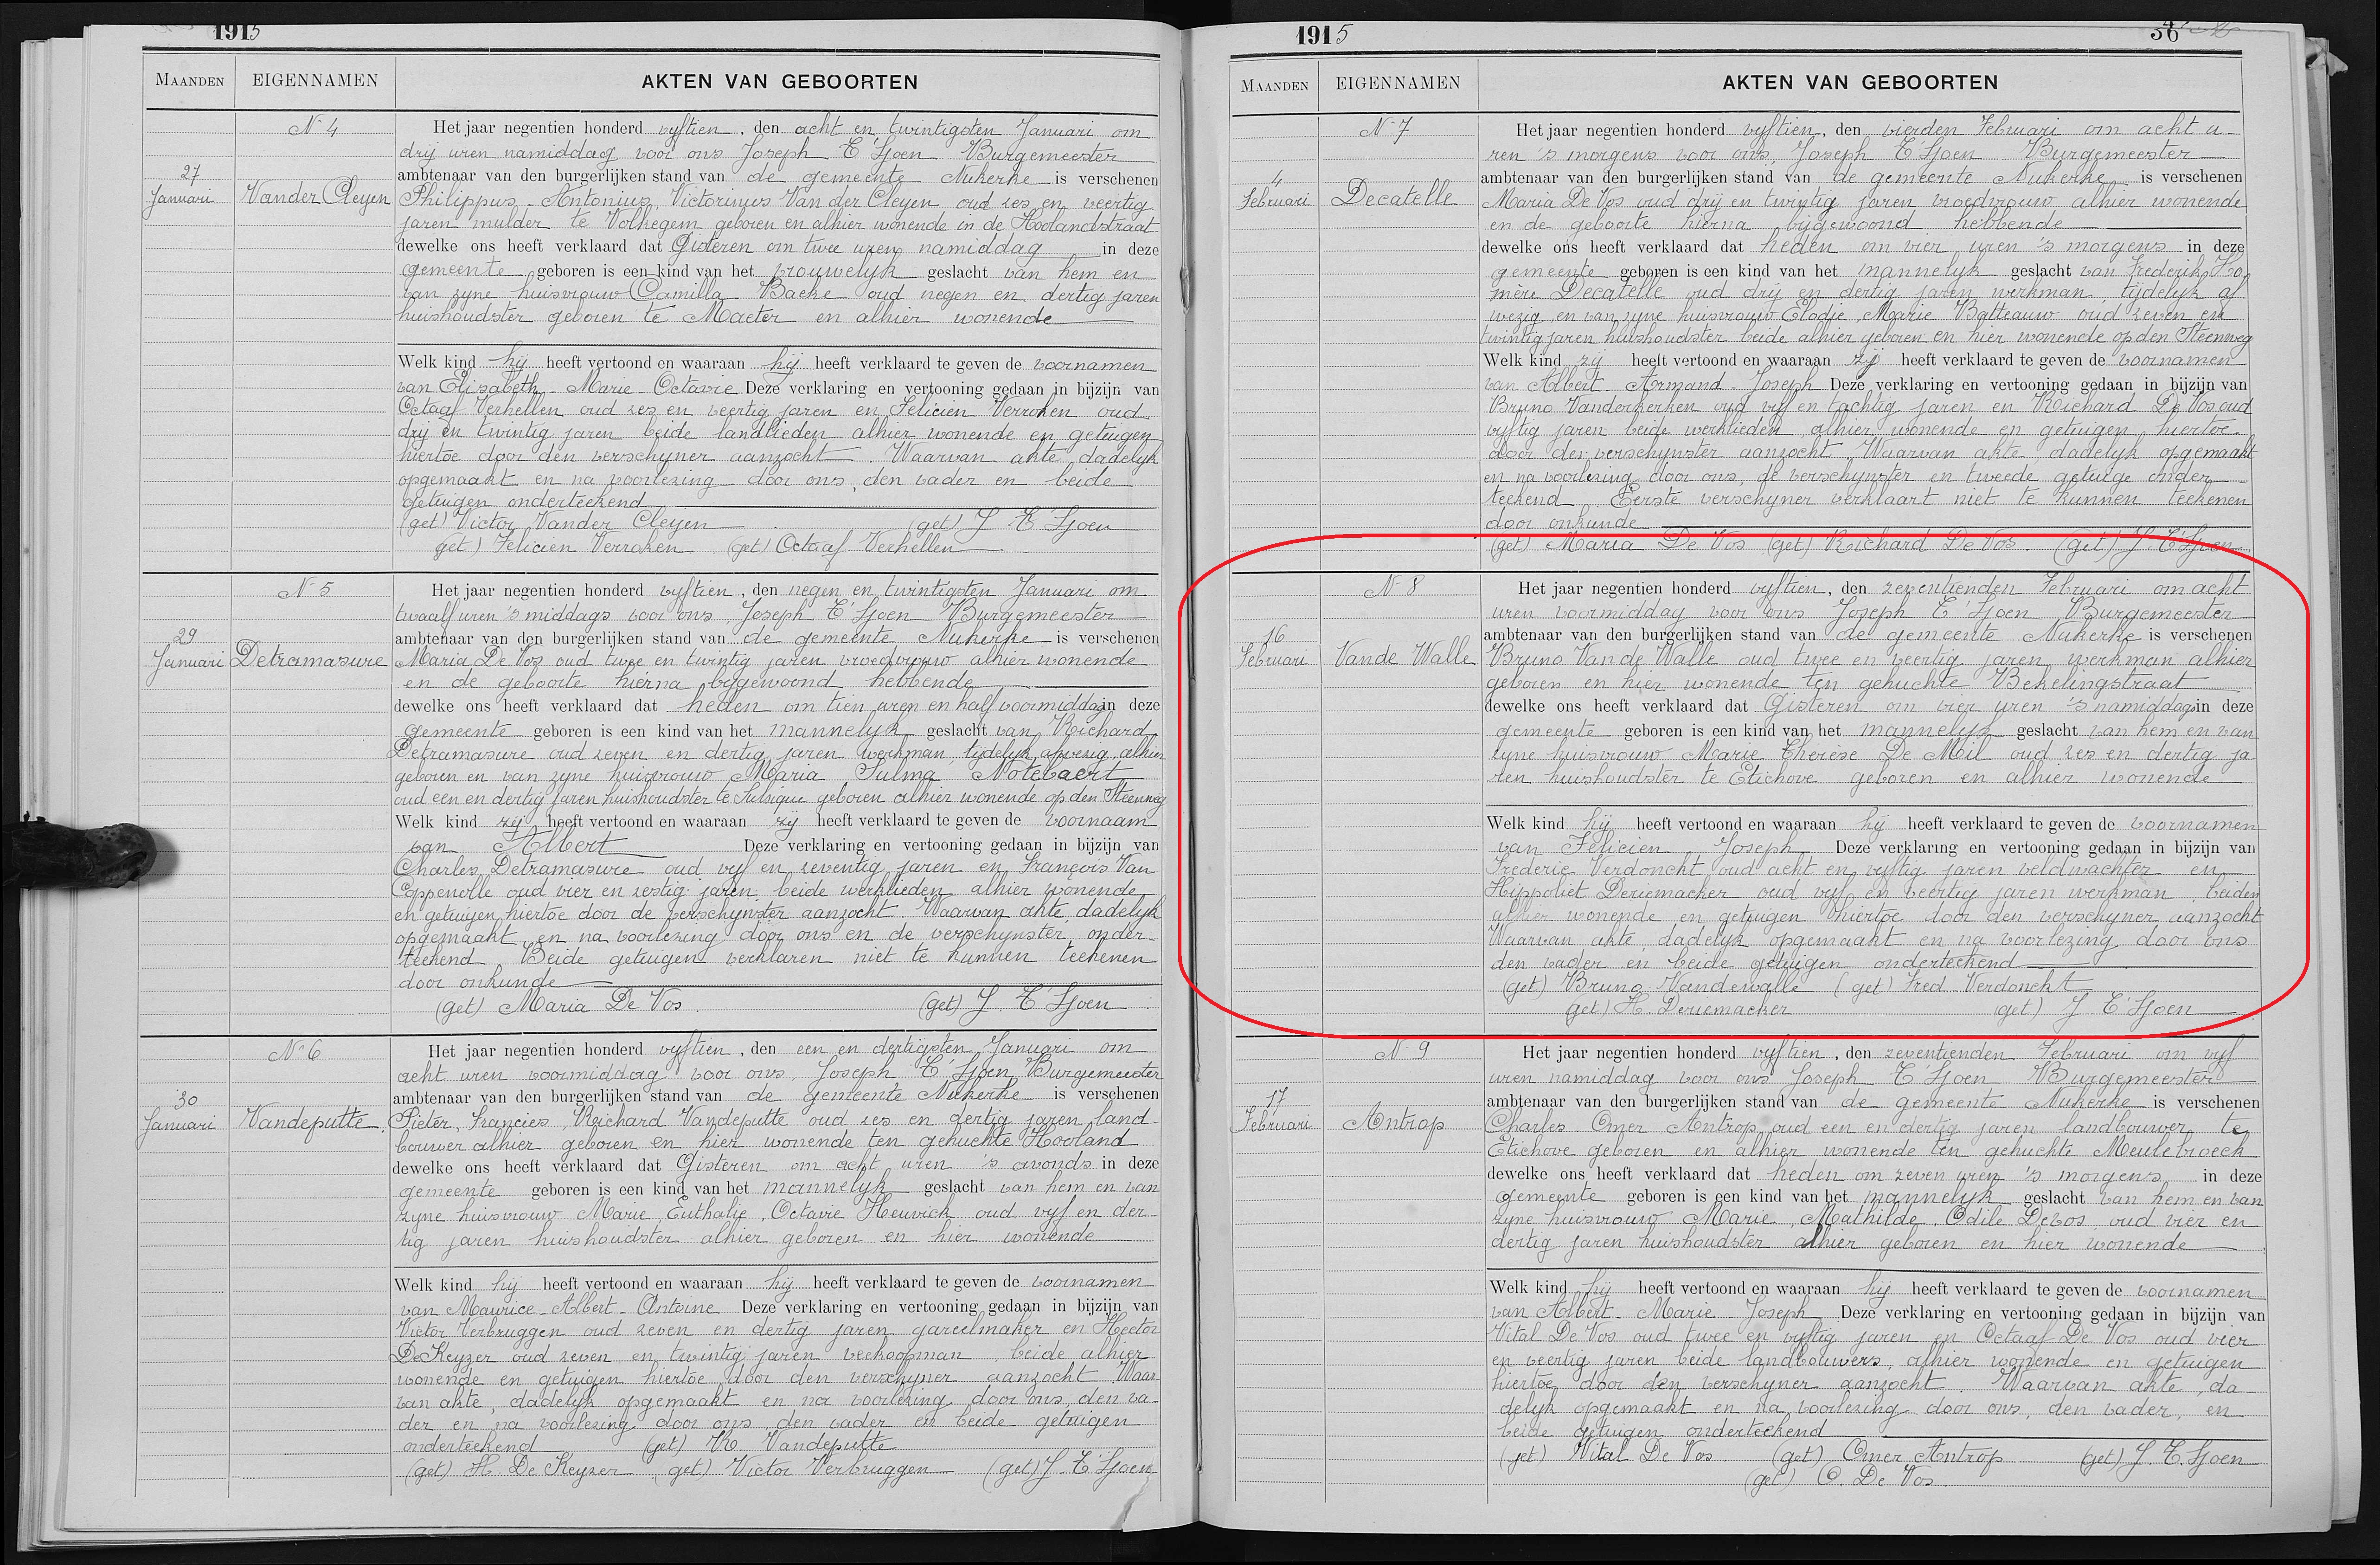 1915
MAANDEN EIGENNAMEN AKTEN VAN GEBOORTEN
N 4
27
Januari
Vander Cleyen
Het jaar negentien honderd vyftien, den acht en twintigsten Januari om
drij uren namiddag voor ons Joseph T'Sjoen Burgemeester
ambtenaar van den burgerlijken stand van de gemeente Nukerke is verschenen
Philippus, Antonius, Victorinus Van der Cleyen oud zes en veertig
jaren mulder te Volkegem geboren en alhier wonende in de Hoolandstraat
dewelke ons heeft verklaard dat Gisteren om twee uren namiddag in deze
gemeente geboren is een kind van het vrouwelyk geslacht van hem en
van zyne huisvrouw Camilla Backe oud negen en dertig jaren
huishoudster geboren te Maeter en alhier wonende
Welk kind hij heeft vertoond en waaraan hij heeft verklaard te geven de voornamen
van Elisabeth - Marie - Octavie Deze verklaring en vertooning gedaan in bijzijn van
Octaaf Verhellen oud zes en veertig jaren en Felicien Verroken oud
drij en twintig jaren beide landlieden alhier wonende en getuigen
hiertoe door den verschyner aanzocht. Waarvan akte dadelyk
opgemaakt en na voorlezing door ons, den vader en beide
getuigen onderteekend
(get) Victor Vander Cleyen (get) J T'Sjoen
get) Felicien Verroken (get) Octaaf Verhellen
N 5
29
Januari
Detramasure
Het jaar negentien honderd vyftien, den negen en twintigsten Januari om
twaalf uren 's middags voor ons, Joseph T'Sjoen Burgemeester
ambtenaar van den burgerlijken stand van de gemeente Nukerke is verschenen
Maria De Vos oud twee en twintig jaren vroedvrouw alhier wonende
en de geboorte hierna bygewoond hebbende
dewelke ons heeft verklaard dat heden om tien uren en half voormiddag in deze
gemeente geboren is een kind van het mannelyk geslacht van Richard
Detramasure oud zeven en dertig jaren werkman, tydelyk afwezig, alhier
geboren en van zyne huisvrouw Maria Sulma Notebaert
oud een en dertig jaren huishoudster te Sulsique geboren alhier wonende op den Steenweg
Welk kind zy heeft vertoond en waaraan zy heeft verklaard te geven de voornaam
van Albert Deze verklaring en vertooning gedaan in bijzijn van
Charles Detramasure oud vyf en zeventig jaren en François Van
Coppenolle oud vier en zestig jaren beide werklieden alhier wonende
en getuigen hiertoe door de verschynster aanzocht. Waarvan akte dadelyk
opgemaakt en na voorlezing door ons en de verschynster onder-
teekend Beide getuigen verklaren niet te kunnen teekenen
door onkunde
(get) Maria De Vos. (get) J. T'Sjoen
N 6
30
Januari
Vandeputte
Het jaar negentien honderd vyftien, den een en dertigsten Januari om
acht uren voormiddag voor ons, Joseph T'Sjoen Burgemeester
ambtenaar van den burgerlijken stand van de gemeente Nukerke is verschenen
Pieter, Francies, Richard Vandeputte oud zes en dertig jaren land-
bouwer alhier geboren en hier wonende ten gehuchte Hooland
dewelke ons heeft verklaard dat Gisteren om acht uren 's avonds in deze
gemeente geboren is een kind van het mannelyk geslacht van hem en van
zyne huisvrouw Marie, Euthalie, Octavie Heuvick oud vyf en der-
tig jaren huishoudster alhier geboren en hier wonende
Welk kind hij heeft vertoond en waaraan hij heeft verklaard te geven de voornamen
van Maurice - Albert - Antoine Deze verklaring en vertooning gedaan in bijzijn van
Victor Verbruggen oud zeven en dertig jaren gareelmaker en Hector
DeKeyzer oud zeven en twintig jaren veekoopman, beide alhier
wonende en getuigen hiertoe door den verschyner aanzocht Waar-
van akte, dadelyk opgemaakt en na voorlezing door ons, den va-
der en na voorlezing door ons, den vader en beide getuigen
onderteekend (get) R. Vandeputte
(get) H. De Keyzer (get) Victor Verbruggen (get) J. T'Sjoen
1915
36
MAANDEN EIGENNAMEN AKTEN VAN GEBOORTEN
N 7
4
Februari
Decatelle
Het jaar negentien honderd vyftien, den vierden Februari om acht u-
ren 's morgens voor ons, Joseph T'Sjoen Burgemeester
ambtenaar van den burgerlijken stand van de gemeente Nukerke is verschenen
Maria De Vos oud drij en twintig jaren vroedvrouw alhier wonende
en de geboorte hierna bijgewoond hebbende
dewelke ons heeft verklaard dat heden om vier uren 's morgens in deze
gemeente geboren is een kind van het mannelyk geslacht van Frederik, Ho-
mère Decatelle oud drij en dertig jaren werkman, tijdelyk af
wezig, en van zyne huisvrouw Elodie, Marie Batteauw oud zeven en
twintig jaren huishoudster beide alhier geboren en hier wonende op den Steenweg
Welk kind zij heeft vertoond en waaraan zij heeft verklaard te geven de voornamen
van Albert - Armand - Joseph Deze verklaring en vertooning gedaan in bijzijn van
Bruno Vanderkerken oud vyf en tachtig jaren en Richard De Vos oud
vyftig jaren beide werklieden alhier wonende en getuigen hiertoe
door den verschynster aanzocht. Waarvan akte dadelyk opgemaakt
en na voorlezing door ons, de verschynster en tweede getuige onder-
teekend Eerste verschyner verklaart niet te kunnen teekenen
door onkunde
(get) Maria De Vos (get) Richard De Vos. (get) J. T'Sjoen
N 8
16
Februari
Vande Walle
Het jaar negentien honderd vyftien, den zeventienden Februari om acht
uren voormiddag voor ons Joseph T'Sjoen Burgemeester
ambtenaar van den burgerlijken stand van de gemeente Nukerke is verschenen
Bruno Van de Walle oud twee en veertig jaren, werkman alhier
geboren en hier wonende ten gehuchte Bekelingstraat
dewelke ons heeft verklaard dat Gisteren om vier uren 's namiddags in deze
gemeente geboren is een kind van het mannelyk geslacht van hem en van
zyne huisvrouw Marie Therèse De Mil oud zes en dertig ja
ren huishoudster te Etichove geboren en alhier wonende
Welk kind hij heeft vertoond en waaraan hij heeft verklaard te geven de voornamen
van Felicien, Joseph Deze verklaring en vertooning gedaan in bijzijn van
Frederic Verdonckt oud acht en vyftig jaren veldwachter en
Hippoliet Deriemacker oud vyf en veertig jaren werkman, beiden
alhier wonende en getuigen hiertoe door den verschyner aanzocht
Waarvan akte, dadelyk opgemaakt en na voorlezing door ons
den vader en beide getuigen onderteekend
(get) Bruno Vandewalle (get) Fred Verdonckt
(get) H. Deriemacker (get) J T'Sjoen
N 9
17
Februari
Antrop
Het jaar negentien honderd vyftien, den zeventienden Februari om vyf
uren namiddag voor ons Joseph T'Sjoen Burgemeester
ambtenaar van den burgerlijken stand van de gemeente Nukerke is verschenen
Charles Omer Antrop oud een en dertig jaren landbouwer te
Etichove geboren en alhier wonende ten gehuchte Meulebroeck
dewelke ons heeft verklaard dat heden om zeven uren 's morgens in deze
gemeente geboren is een kind van het mannelyk geslacht van hem en van
zyne huisvrouw Marie, Mathilde, Odile Devos, oud vier en
dertig jaren huishoudster alhier geboren en hier wonende
Welk kind hij heeft vertoond en waaraan hij heeft verklaard te geven de voornamen
van Albert - Marie - Joseph Deze verklaring en vertooning gedaan in bijzijn van
Vital De Vos oud twee en vyftig jaren en Octaaf De Vos oud vier
en veertig jaren beide landbouwers, alhier wonende en getuigen
hiertoe door den verschyner aanzocht. Waarvan akte, da-
delyk opgemaakt en na voorlezing door ons, den vader, en
beide getuigen onderteekend
(get) Vital De Vos (get) Omer Antrop (get) J. T. Sjoen
(get) O. De Vos.